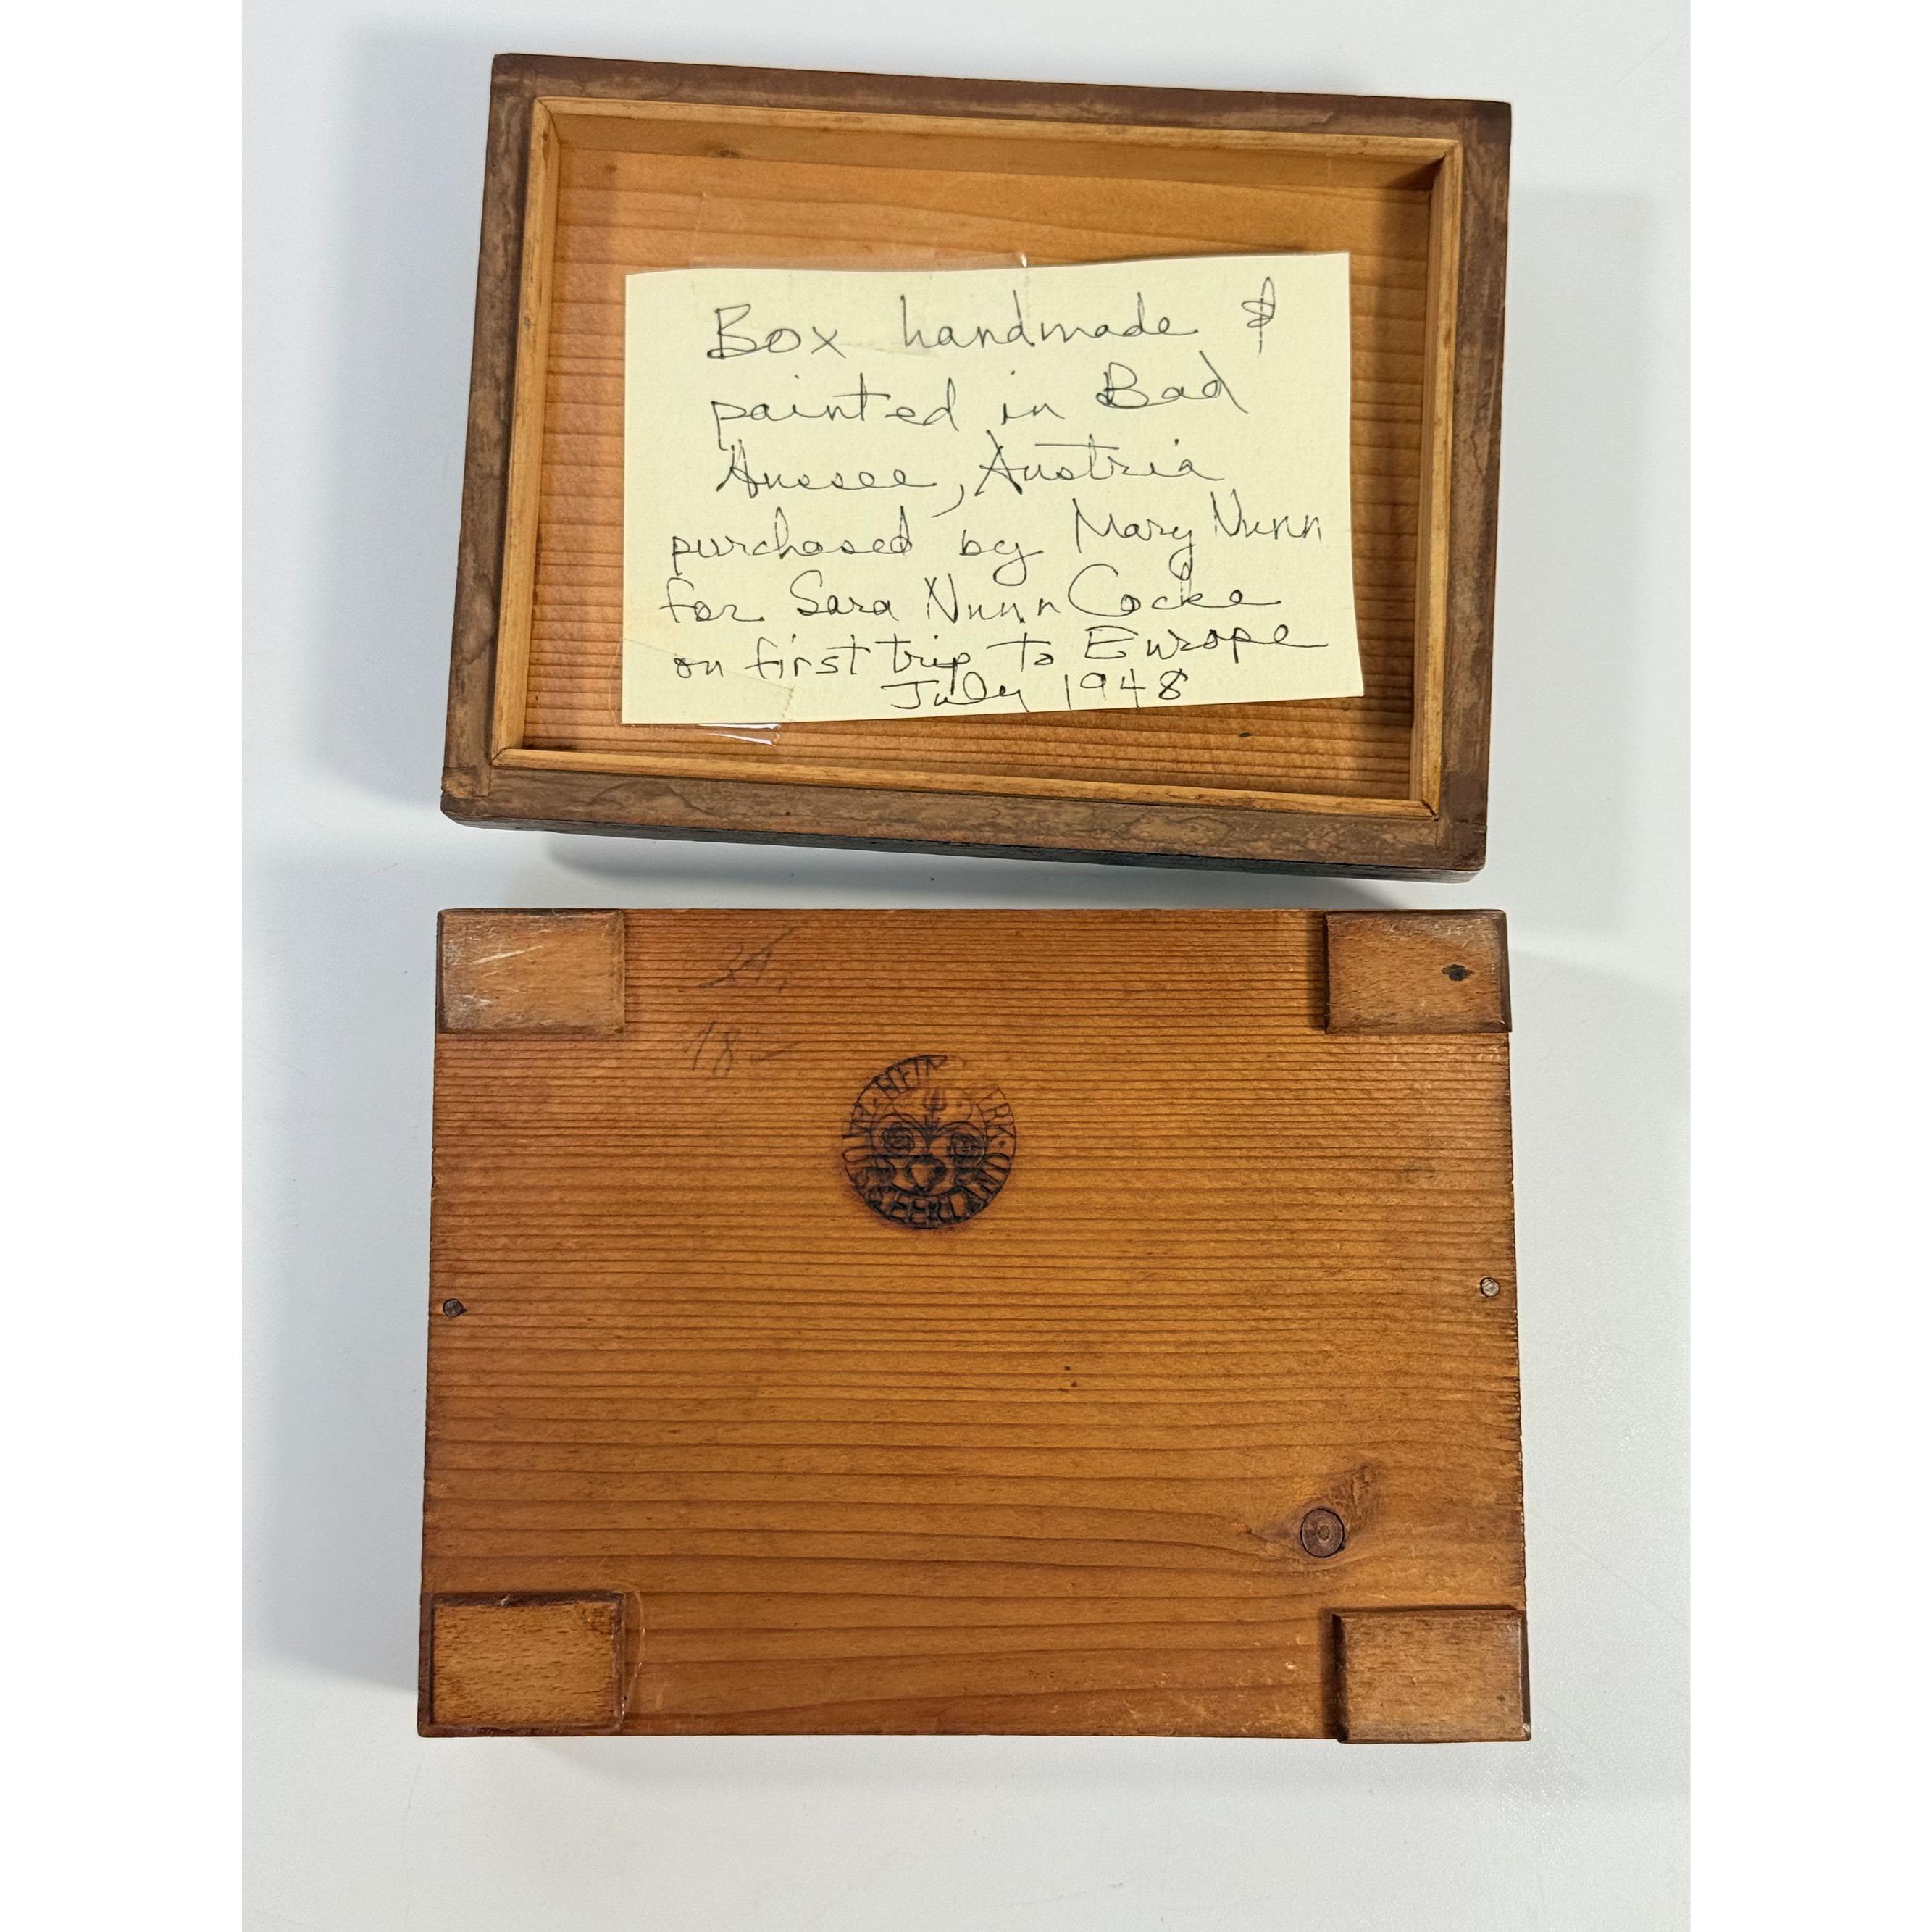 Box handmade &
painted in Bad
Aussee, Austria
purchased by Mary Nunn
for Sara Nunn Cocke
on first trip to Europe
July 1948
18-
AUSSEERLAND